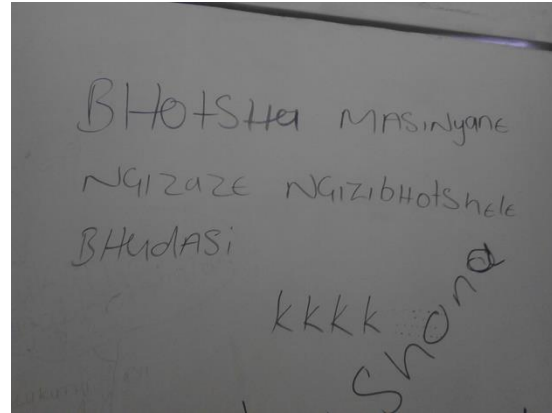 BHotSHa MASiNyanE
NGIZaZE NGIZIbHotShElE
BHudASi
kkkk
Shona